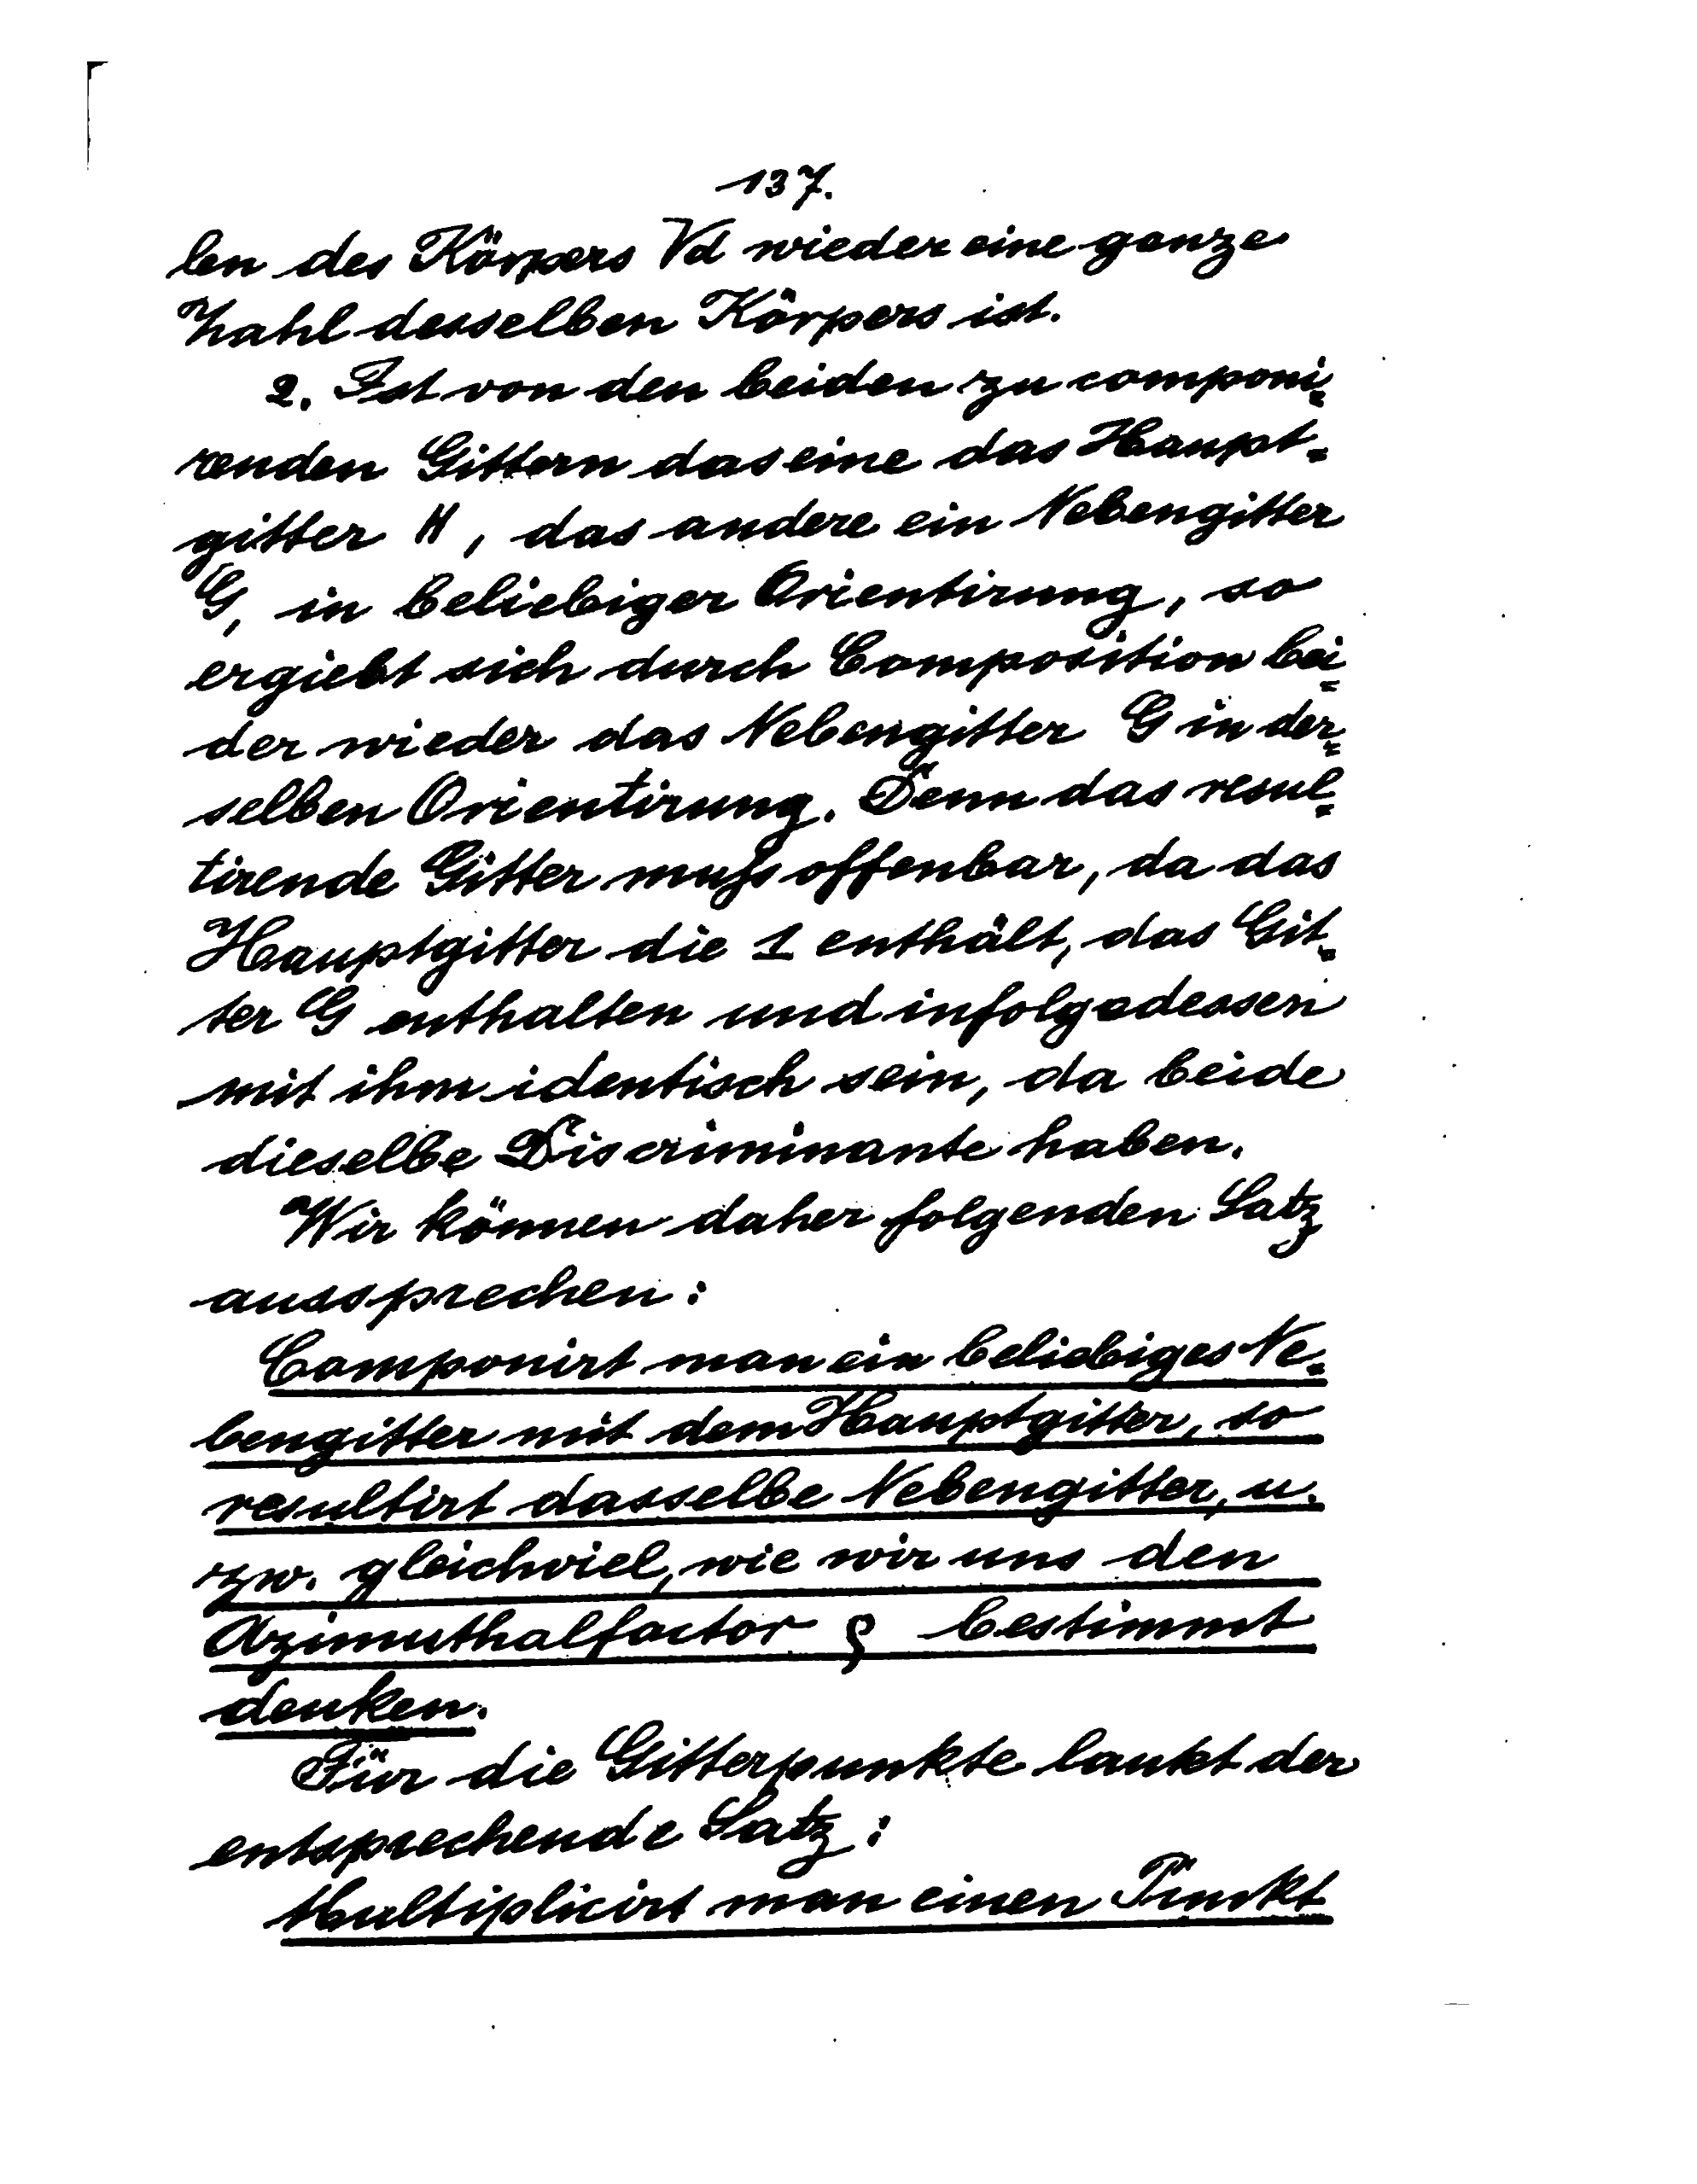 137.
len des Körpers √d wieder eine ganze
Zahl desselben Körpers ist.
2. Ist von den beiden zu componi=
renden Gittern das eine das Haupt=
gitter H, das andere ein Nebengitter
G, in beliebiger Orientirung, so
ergiebt sich durch Composition bei=
der wieder das Nebengitter G in der=
selben Orientirung. Denn das resul=
tirende Gitter muß offenbar, da das
Hauptgitter die 1 enthält, das Git=
ter G enthalten und infolgedessen
mit ihm identisch sein, da beide
dieselbe Discriminante haben.
Wir können daher folgenden Satz
aussprechen:
Componirt man ein beliebiges Ne=
bengitter mit dem Hauptgitter, so
resultirt dasselbe Nebengitter, u.
zw. gleichviel, wie wir uns den
Azimuthalfactor ϱ bestimmt
denken.
Für die Gitterpunkte lautet der
entsprechende Satz:
Multiplicirt man einen Punkt